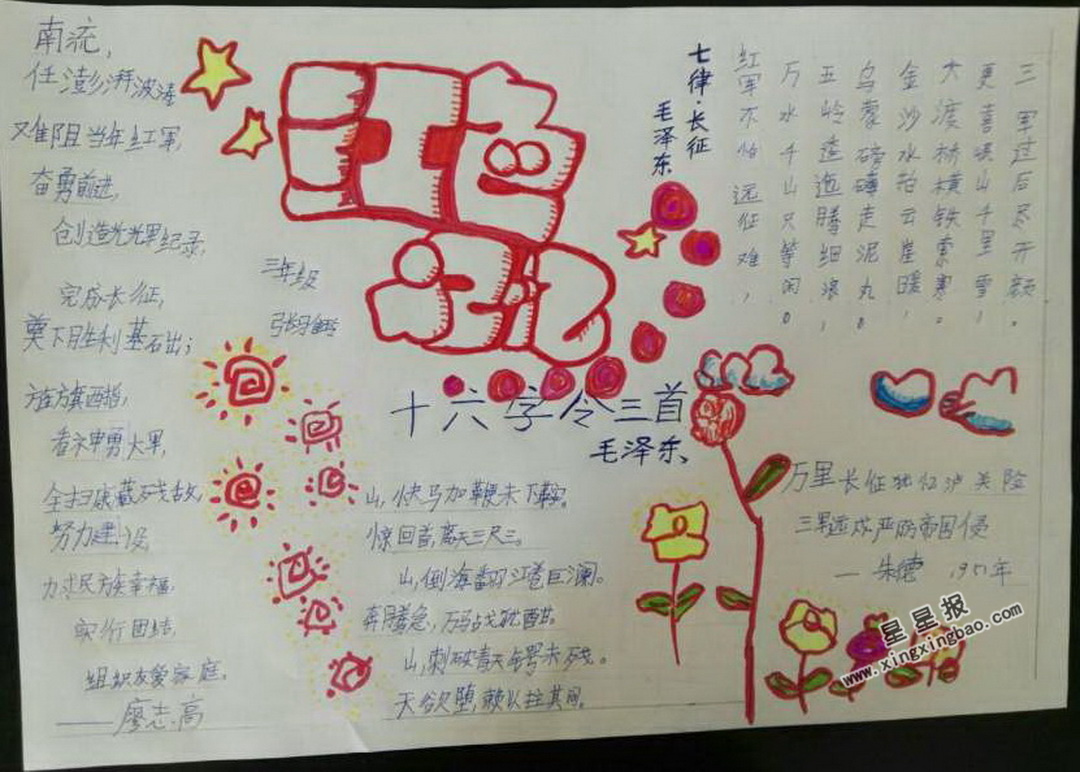 南流,
任澎湃波涛
难阻当年红军,
奋勇前进,
创造光辉纪录,
完成长征,
奠下胜利基础;
旌旗西指,
看神勇大军,
全扫康藏残敌,
努力建设,
力求民族幸福,
实行团结,
组织友爱家庭.
——廖志高
红色
三年级
七律·长征
毛泽东
红军不怕远征难,
万水千山只等闲。
五岭逶迤腾细浪,
乌蒙磅礴走泥丸。
金沙水拍云崖暖,
大渡桥横铁索寒。
更喜岷山千里雪,
三军过后尽开颜。
十六字令三首
毛泽东、
山,快马加鞭未下鞍。
惊回首,离天三尺三。
山,倒海翻江卷巨澜。
奔腾急,万马战犹酣。
山,刺破青天锷未残。
天欲堕,赖以拄其间。
万里长征犹忆泸关险
三军远戍严防帝国侵
—朱德 1951年
星星报
www.xingxingbao.com